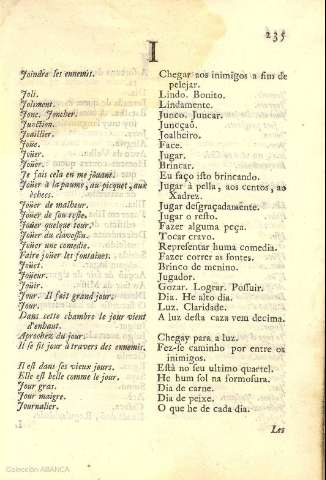 235
I
Joindre les ennemis. Chegar aos inimigos a fim de
pelejar.
Joli. Lindo. Bonito.
Joliment. Lindamente.
Jonc. Joncher. Junco. Juncar.
Jonction. Juncçaõ.
Jouaillier. Joalheiro.
Joue. Face.
Joüer. Jugar.
Joüer. Brincar.
Je fais cela en me jöuant. Eu faço isto brincando.
Joüer à la paume, au picquet, aux Jugar à pella, aos centos, ao
échecs. Xadres.
Joüer de malheur. Jugar desgraçadamẽte.
Joüer de son reste. Jugar o resto.
Joüer quelque tour. Fazer alguma peça.
Joüer du clavessin. Tocar cravo.
Joüer une comedie. Reprelentar huma comedia.
Faire joüer les fontaines. Fazer correr as fontes.
Joüet. Brinco de menino.
Joüeur. Jugador.
Joüir. Gozar. Lograr. Possuir.
Jour. Il fait grand jour. Dia. He alto dia.
Jour. Luz. Claridade.
Dans cette chambre le jour vient A luz desta caza vem decima.
d'enhaut.
Aprochez du jour. Chegay para a luz.
Il se fit jour à travers des ennemis. Fez-se caminho por entre os
inimigos.
Il est dans ses vieux jours. Està no seu ultimo quartel.
Elle est belle comme le jour. He hum sol na formosura.
Jour gras. Dia de carne.
Jour maigre. Dia de peixe.
Journalier. O que he de cada dia.
Les
Colección ABANCA